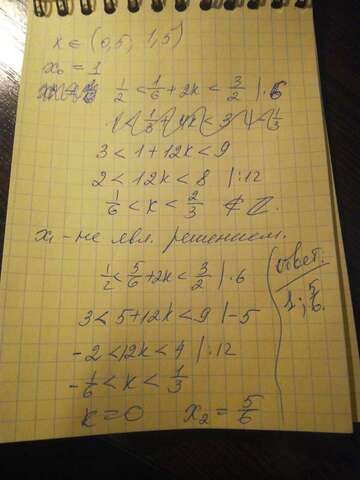 x ∈ (0,5; 1,5)
x₀ = 1
1/2 < 1/6 + 2k < 3/2 | · 6
3 < 1 + 12k < 9
2 < 12k < 8 | : 12
1/6 < k < 2/3 ∉ Z.
x₁ - не явл. решением.
1/2 < 5/6 + 2k < 3/2 | · 6
3 < 5 + 12k < 9 | - 5
- 2 < 12k < 4 | : 12
- 1/6 < k < 1/3
k = 0 x₂ = 5/6
ответ:
1; 5/6.